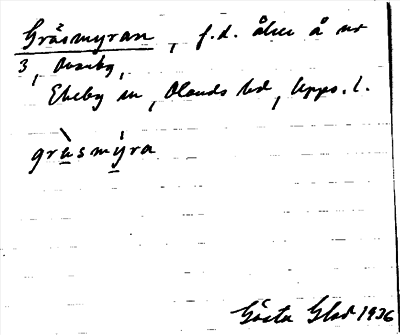 Gräsmyran, f.d. åker å nr
3, Överby,
Ekeby sn, Olands hd, Upps. l.
gràsmýra
Gösta Glad 1936